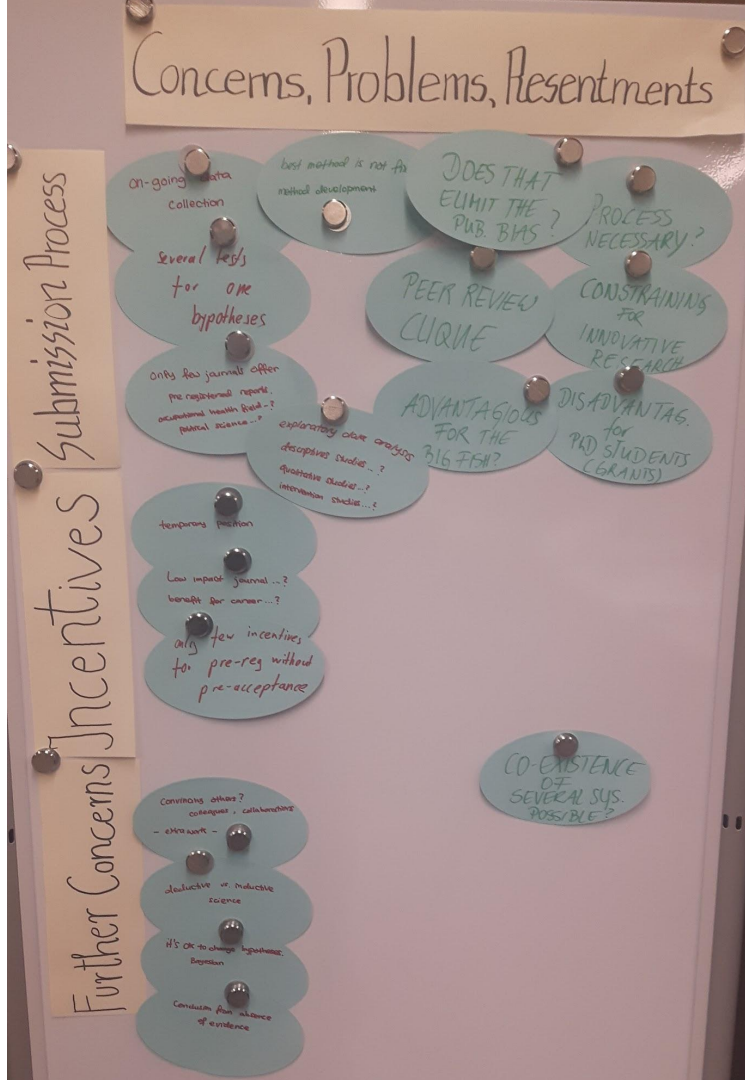 Concerns, Problems, Resentments
Submission Process
on-going data
collection
best method is not
method development
DOES THAT
ELIMIT THE
PUB. BIAS?
PROCESS
NECESSARY?
several tests
for one
hypotheses
PEER REVIEW
CLIQUE
CONSTRAINING
FOR
INNOVATIVE
RESEARCH
Only few journals offer
pre registered reports.
occupational health field..?
political science...?
exploratory data analysis
descriptive studies...?
qualitative studies...?
intervention studies...?
ADVANTAGIOUS
FOR THE
BIG FISH?
DISADVANTAG.
for
PhD STUDENTS
(GRANTS)
Incentives
temporary position
Low impact journal...?
benefit for career...?
only few incentives
for pre-reg without
pre-acceptance
Further Concerns
CO-EXISTENCE
OF
SEVERAL SYS.
POSSIBLE?
Convincing others?
colleagues, collaborations
- extra work -
deductive vs. inductive
science
it's ok to change hypotheses.
Bayesian
Conclusion from absence
of evidence